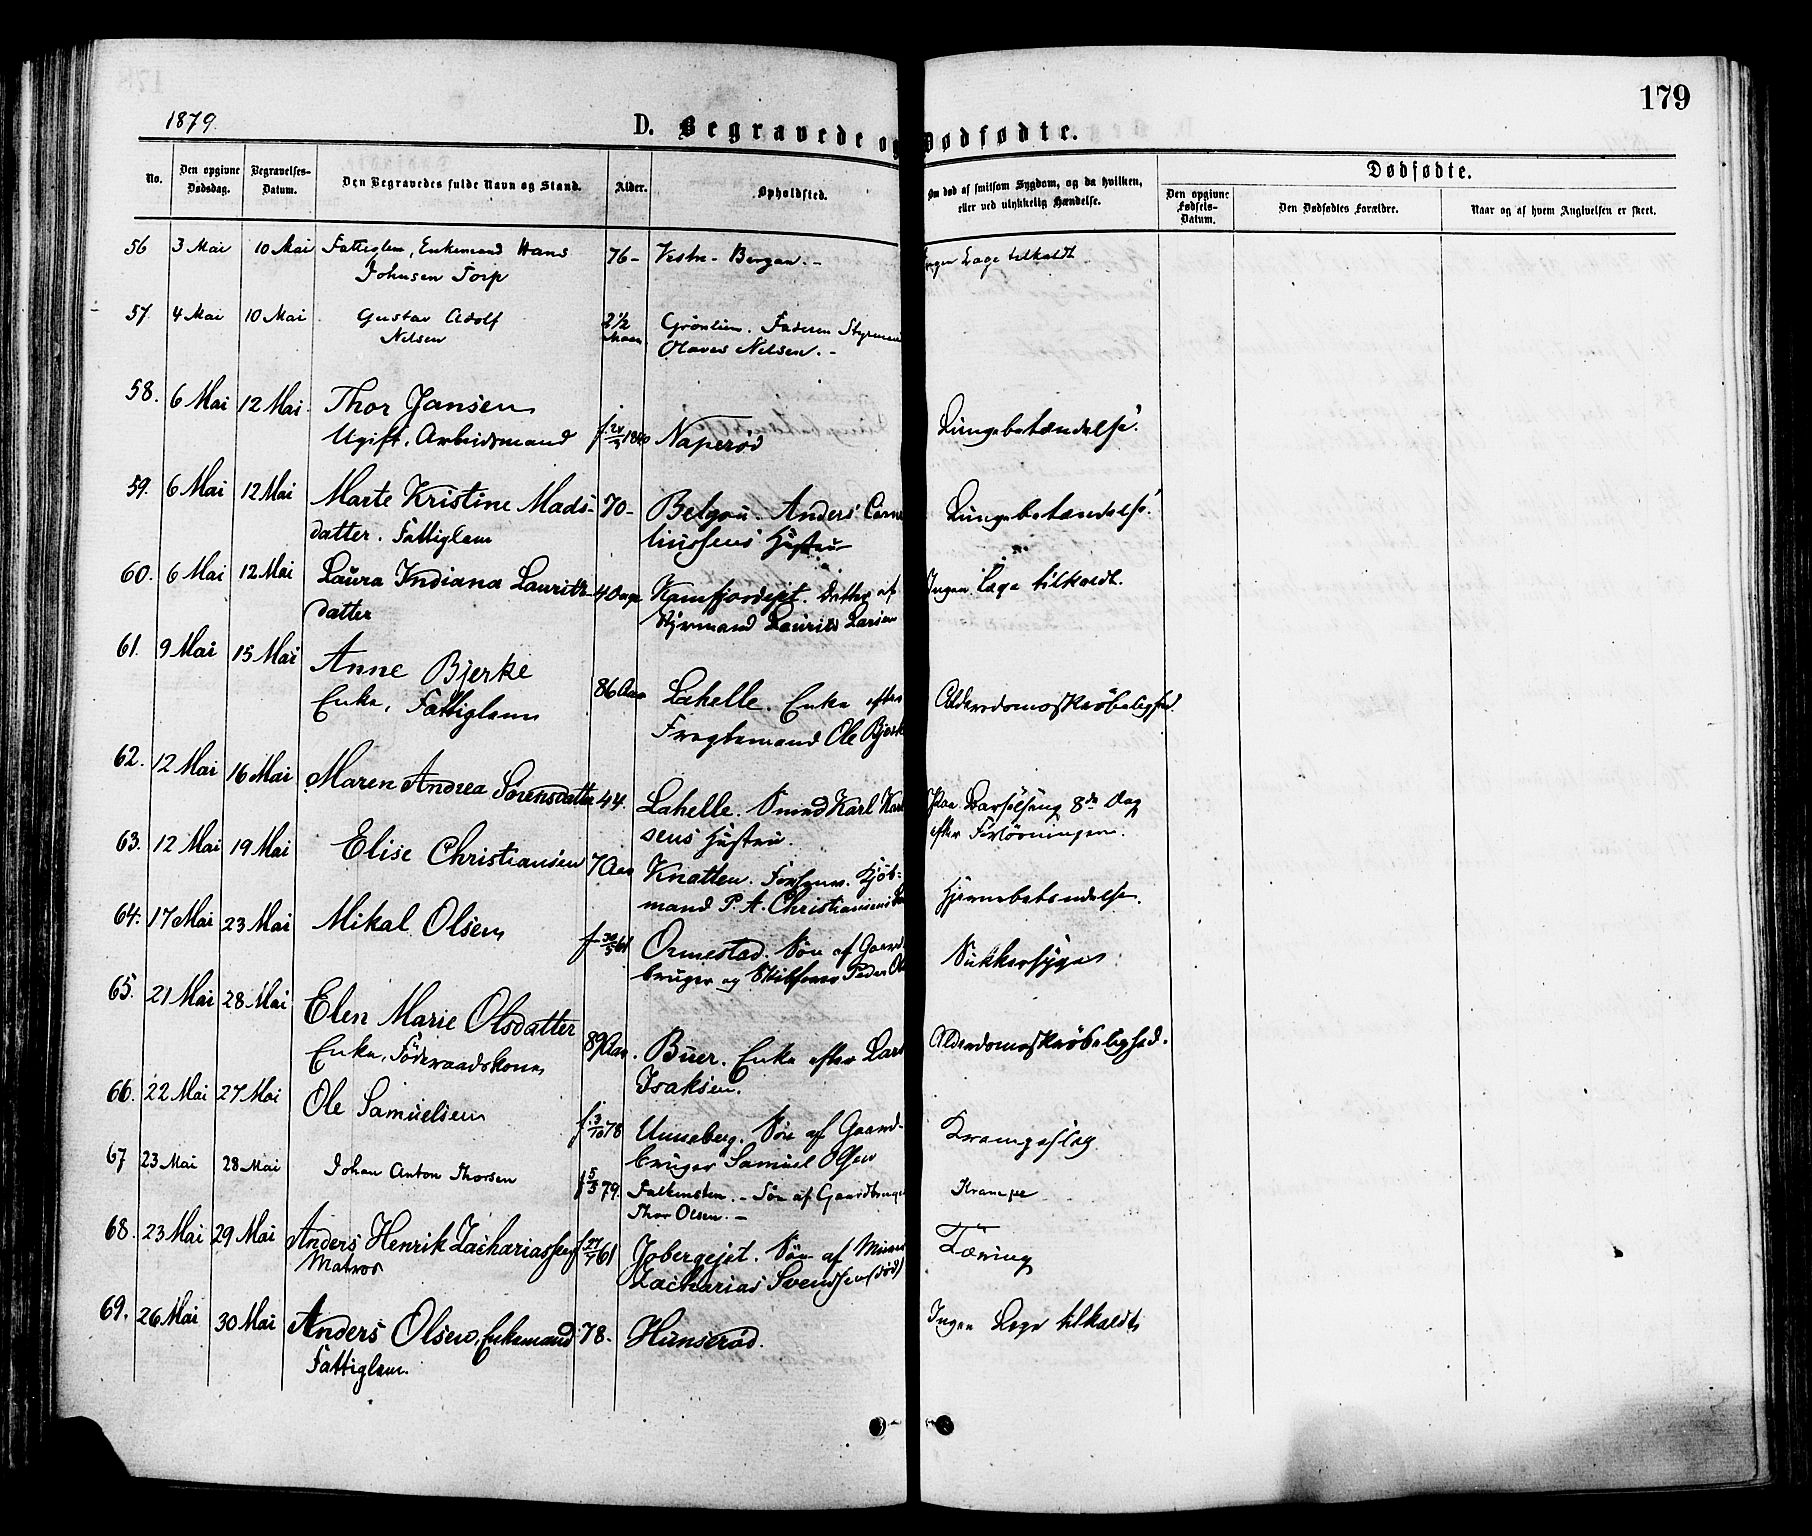 179
1879.
D. Begravede og Dødfødte.
No. Den opgivne Dødsdag. Begravelses-Datum. Den Begravedes fulde Navn og Stand. Alder. Opholdsted. Om død af smitsom Sygdom, og da hvilken, eller ved ulykkelig Hændelse. Dødfødte.
Den opgivne Fødsels-Datum. Den Dødfødtes Forældre. Naar og af hvem Angivelsen er skeet.
56 3 Mai 10 Mai Fattiglem, Enkemand Hans 76- Vestre Bergan.- Ingen Læge tilkaldt
Johnsen Torp
57 4 Mai 10 Mai Gustav Adolf 2½ Grønlien. Faderen Styrmand
Nilsen Maan Olaves Nilsen.-
58. 6 Mai 12 Mai. Thor Jansen
Ugift. Arbeidsmand Naperød Lungebetændelse.
59. 6 Mai 12 Mai Marte Kristine Mads- 70- Anders Corne Lungebetændelse.
datter. Fattiglem liussens Hustru
60. 6 Mai 12 Mai Laura Indiana Laurits 4 Dage Kamfjordejet. Datter af Ingen Læge tilkaldt.
datter Styrmand Laurits Larsen
61. 9 Mai 15 Mai Anne Bjerke
Enke, Fattiglem 86 Aar Lahelle. Enke efter Alderdomsskrøbelighed.
Fragtemand Ole Bjerke
62. 12 Mai 16 Mai Maren Andrea Sørensdatter 44. Lahelle. Smed Karl Karl Paa Barselseng 8de Dag
sens Hustru. efter Forløsningen.
63. 12 Mai 19 Mai Elise Christiansen 7 Aar Knatten. Kjøb-
mand P. A. Christiansens Hjernebetændelse.
64. 17 Mai 23 Mai Mikal Olsen f. 30/5 61 Ormestad. Søn af Gaard- Sukkersyge
bruger og Skibsfører Peder Ols
65. 21 Mai 28 Mai Elen Marie Olsdatter
Enke, Föderaadskone 89 Aar. Buer. Enke efter Lars Alderdomsskrøbelighed.
Isaksen.
66. 22 Mai 27 Mai Ole Samuelsen f. 3/10 78 Unneberg. Søn af Gaard- Krampeslag
bruger Samuel Olsen
67 23 Mai 28 Mai Johan Anton Thorsen f 5/3 79. Falkensten. - Søn af Gaardbruger Krampe
Thor Olsen. -
68. 23 Mai 29 Mai Anders Henrik Zachariassen Jobergejet. Søn af Tæring
Matros Zacharias Svendsen (død)
69. 26 Mai 30 Mai Anders Olsen, Enkemand 78- Hunserød. Ingen Læge tilkaldt
Fattiglem.